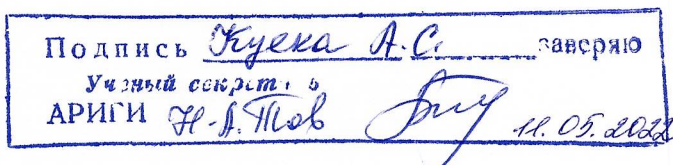 Подпись Куека А.С. заверяю
Ученый секретарь
АРИГИ Н.А. Тов
11.05.2022